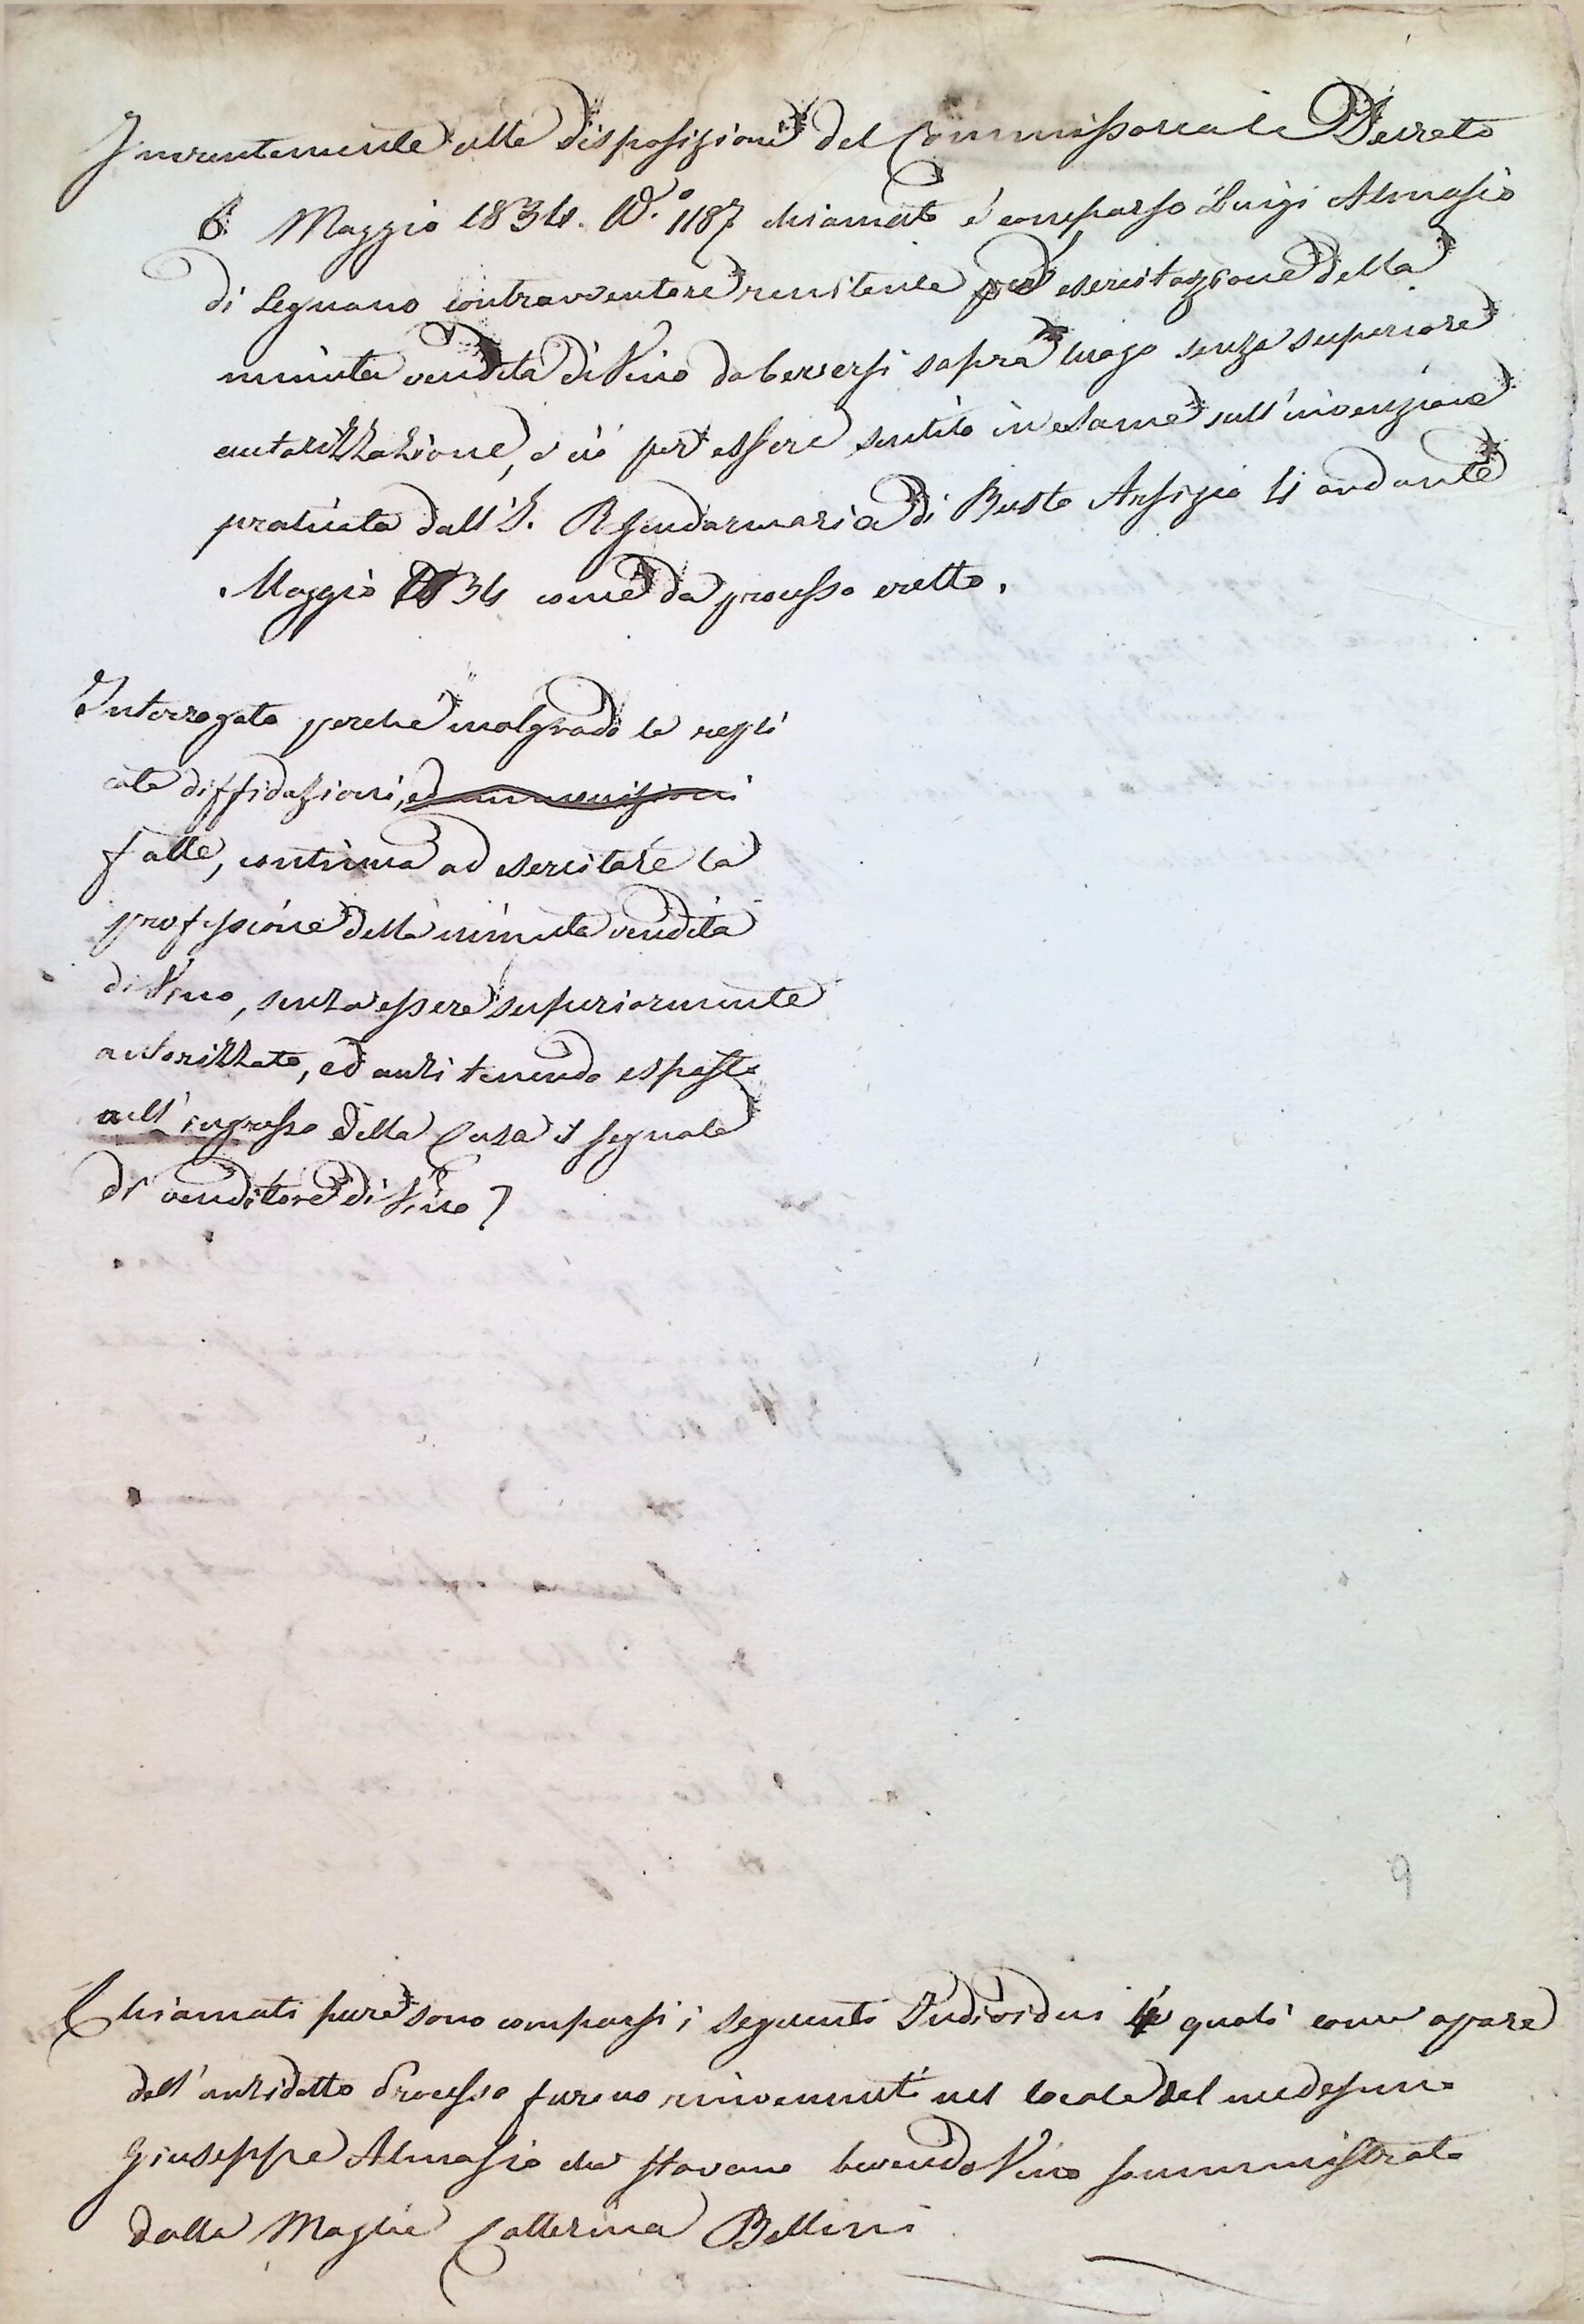 Inerentemente alle disposizioni del Commissariale Decreto
6 Maggio 1834. N.° 1187 chiamato è comparso Luigi Almasio
di Legnano contravventore renitente per esercitazione della
minuta vendita di Vino da beversi sopra luogo senza superiore
autorizzazione, e ciò per essere sentito in esame sull'invenzione
praticata dall'I. R Gendarmaria di Busto Arsizio li andante
Maggio 1834 come da processo eretto.
Interrogato perché malgrado le repli
cate diffidazioni, ed ammonizioni
fatte, continua ad esercitare la
professione della minuta vendita
di Vino, senza essere superiormente
autorizzato, ed anzi tenendo esposto
all'ingresso della Casa il segnale
di venditore di Vino?
9
Chiamati pure sono comparsi i seguenti Individui quali come appare
dall'anzidetto Processo furono rinvenuti nel locale del medesimo
Giuseppe Almasio che stavano bevendo Vino somministrato
dalla Moglie Catterina Bellini